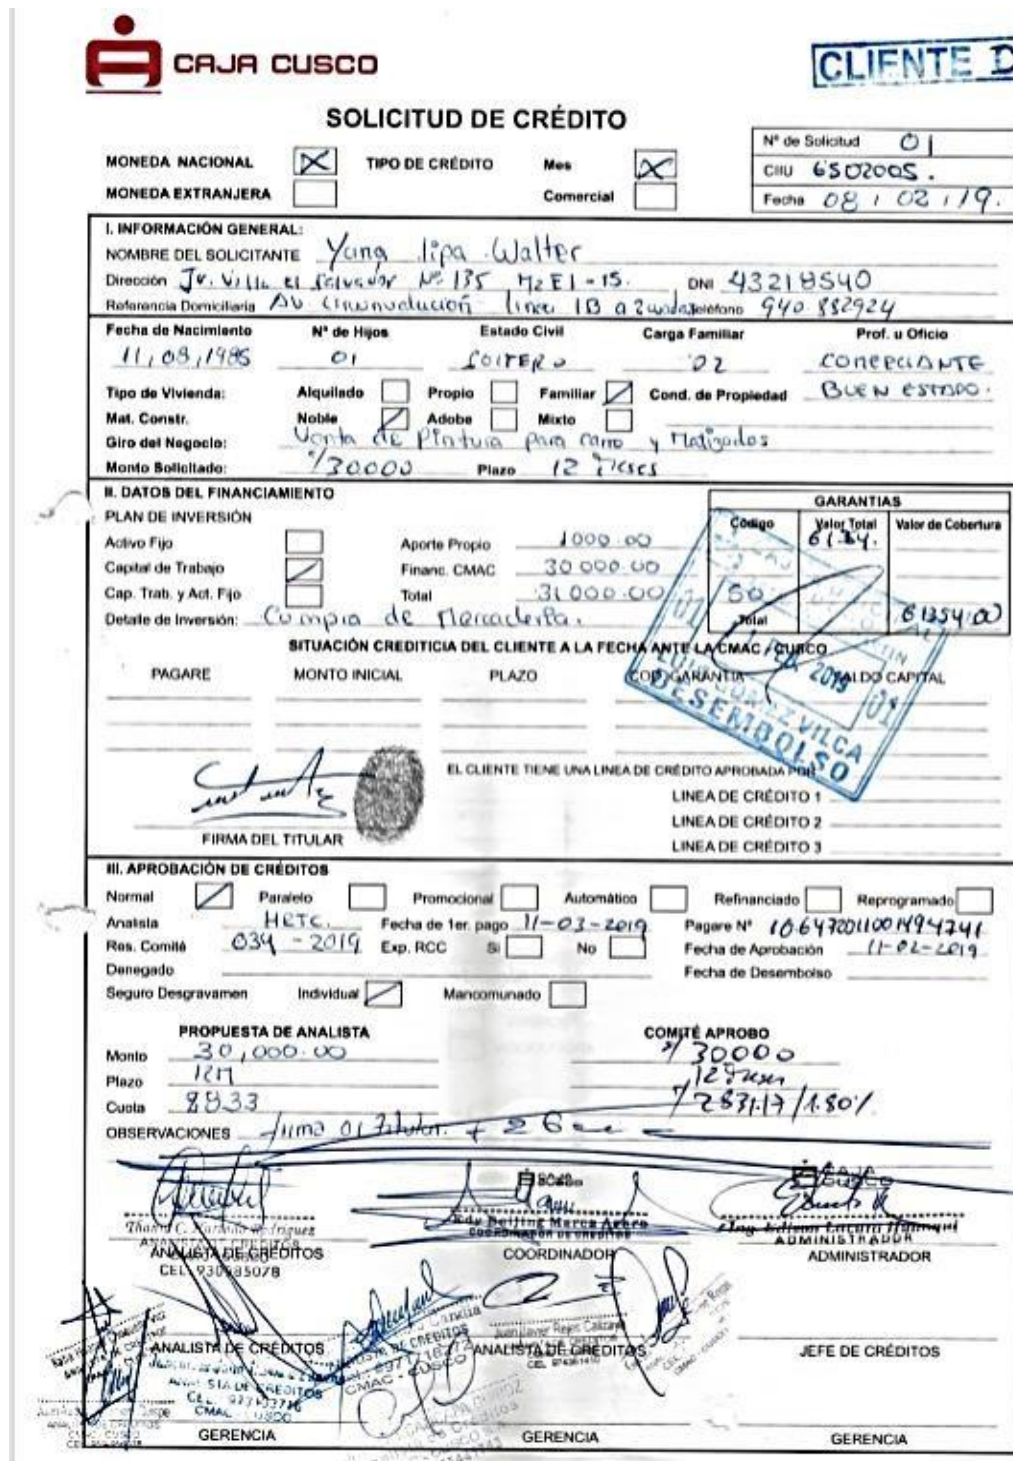 CAJA CUSCO
CLIENTE D
SOLICITUD DE CRÉDITO
MONEDA NACIONAL TIPO DE CRÉDITO Mes
MONEDA EXTRANJERA Comercial
Nº de Solicitud 01
CIIU 6502005.
Fecha 08 / 02 / 19.
I. INFORMACIÓN GENERAL:
NOMBRE DEL SOLICITANTE Yana lipa Walter
Dirección Jr. Villa el Salvador Nº 135 Mz E1-15. DNI 43218540
Referencia Domiciliaria AV. Circunvalución linea 1B a 2 Teléfono 940 882924
Fecha de Nacimiento Nº de Hijos Estado Civil Carga Familiar Prof. u Oficio
11/08/1985 01 SOLTERO 02 COMERCIANTE
Tipo de Vivienda: Alquilado Propio Familiar Cond. de Propiedad BUEN ESTADO.
Mat. Constr. Noble Adobe Mixto
Giro del Negocio: Venta de Pintura para carro y Matizados
Monto Solicitado: S/30000 Plazo 12 Meses
II. DATOS DEL FINANCIAMIENTO
PLAN DE INVERSIÓN
Activo Fijo Aporte Propio 1000.00
Capital de Trabajo Financ. CMAC 30 000.00
Cap. Trab. y Act. Fijo Total 31 000.00
Detalle de Inversión: Compra de Mercadería.
GARANTIAS
Código Valor Total Valor de Cobertura
50
Total 61354.00
SITUACIÓN CREDITICIA DEL CLIENTE A LA FECHA ANTE LA CMAC CUSCO
PAGARE MONTO INICIAL PLAZO COD. GARANTIA SALDO CAPITAL
01 FEB 2019 01
GOMEZ VILCA
DESEMBOLSO
EL CLIENTE TIENE UNA LINEA DE CRÉDITO APROBADA POR
LINEA DE CRÉDITO 1
LINEA DE CRÉDITO 2
LINEA DE CRÉDITO 3
FIRMA DEL TITULAR
III. APROBACIÓN DE CRÉDITOS
Normal Paralelo Promocional Automático Refinanciado Reprogramado
Analista HRTC. Fecha de 1er. pago 11-03-2019 Pagare Nº 106472011001494741
Res. Comité 034 - 2019 Exp. RCC Si No Fecha de Aprobación 11-02-2019
Denegado Fecha de Desembolso
Seguro Desgravamen Individual Mancomunado
PROPUESTA DE ANALISTA COMITÉ APROBO
Monto 30,000.00 S/30000
Plazo 12M 12 Meses
Cuota 2833 S/2831.17/1.80%
OBSERVACIONES
ANALISTA DE CRÉDITOS COORDINADOR ADMINISTRADOR
CEL. 930985078
COORDINADOR DE CREDITOS
ADMINISTRADOR
ANALISTA DE CRÉDITOS ANALISTA DE CRÉDITOS JEFE DE CRÉDITOS
CMAC - CUSCO
GERENCIA GERENCIA GERENCIA